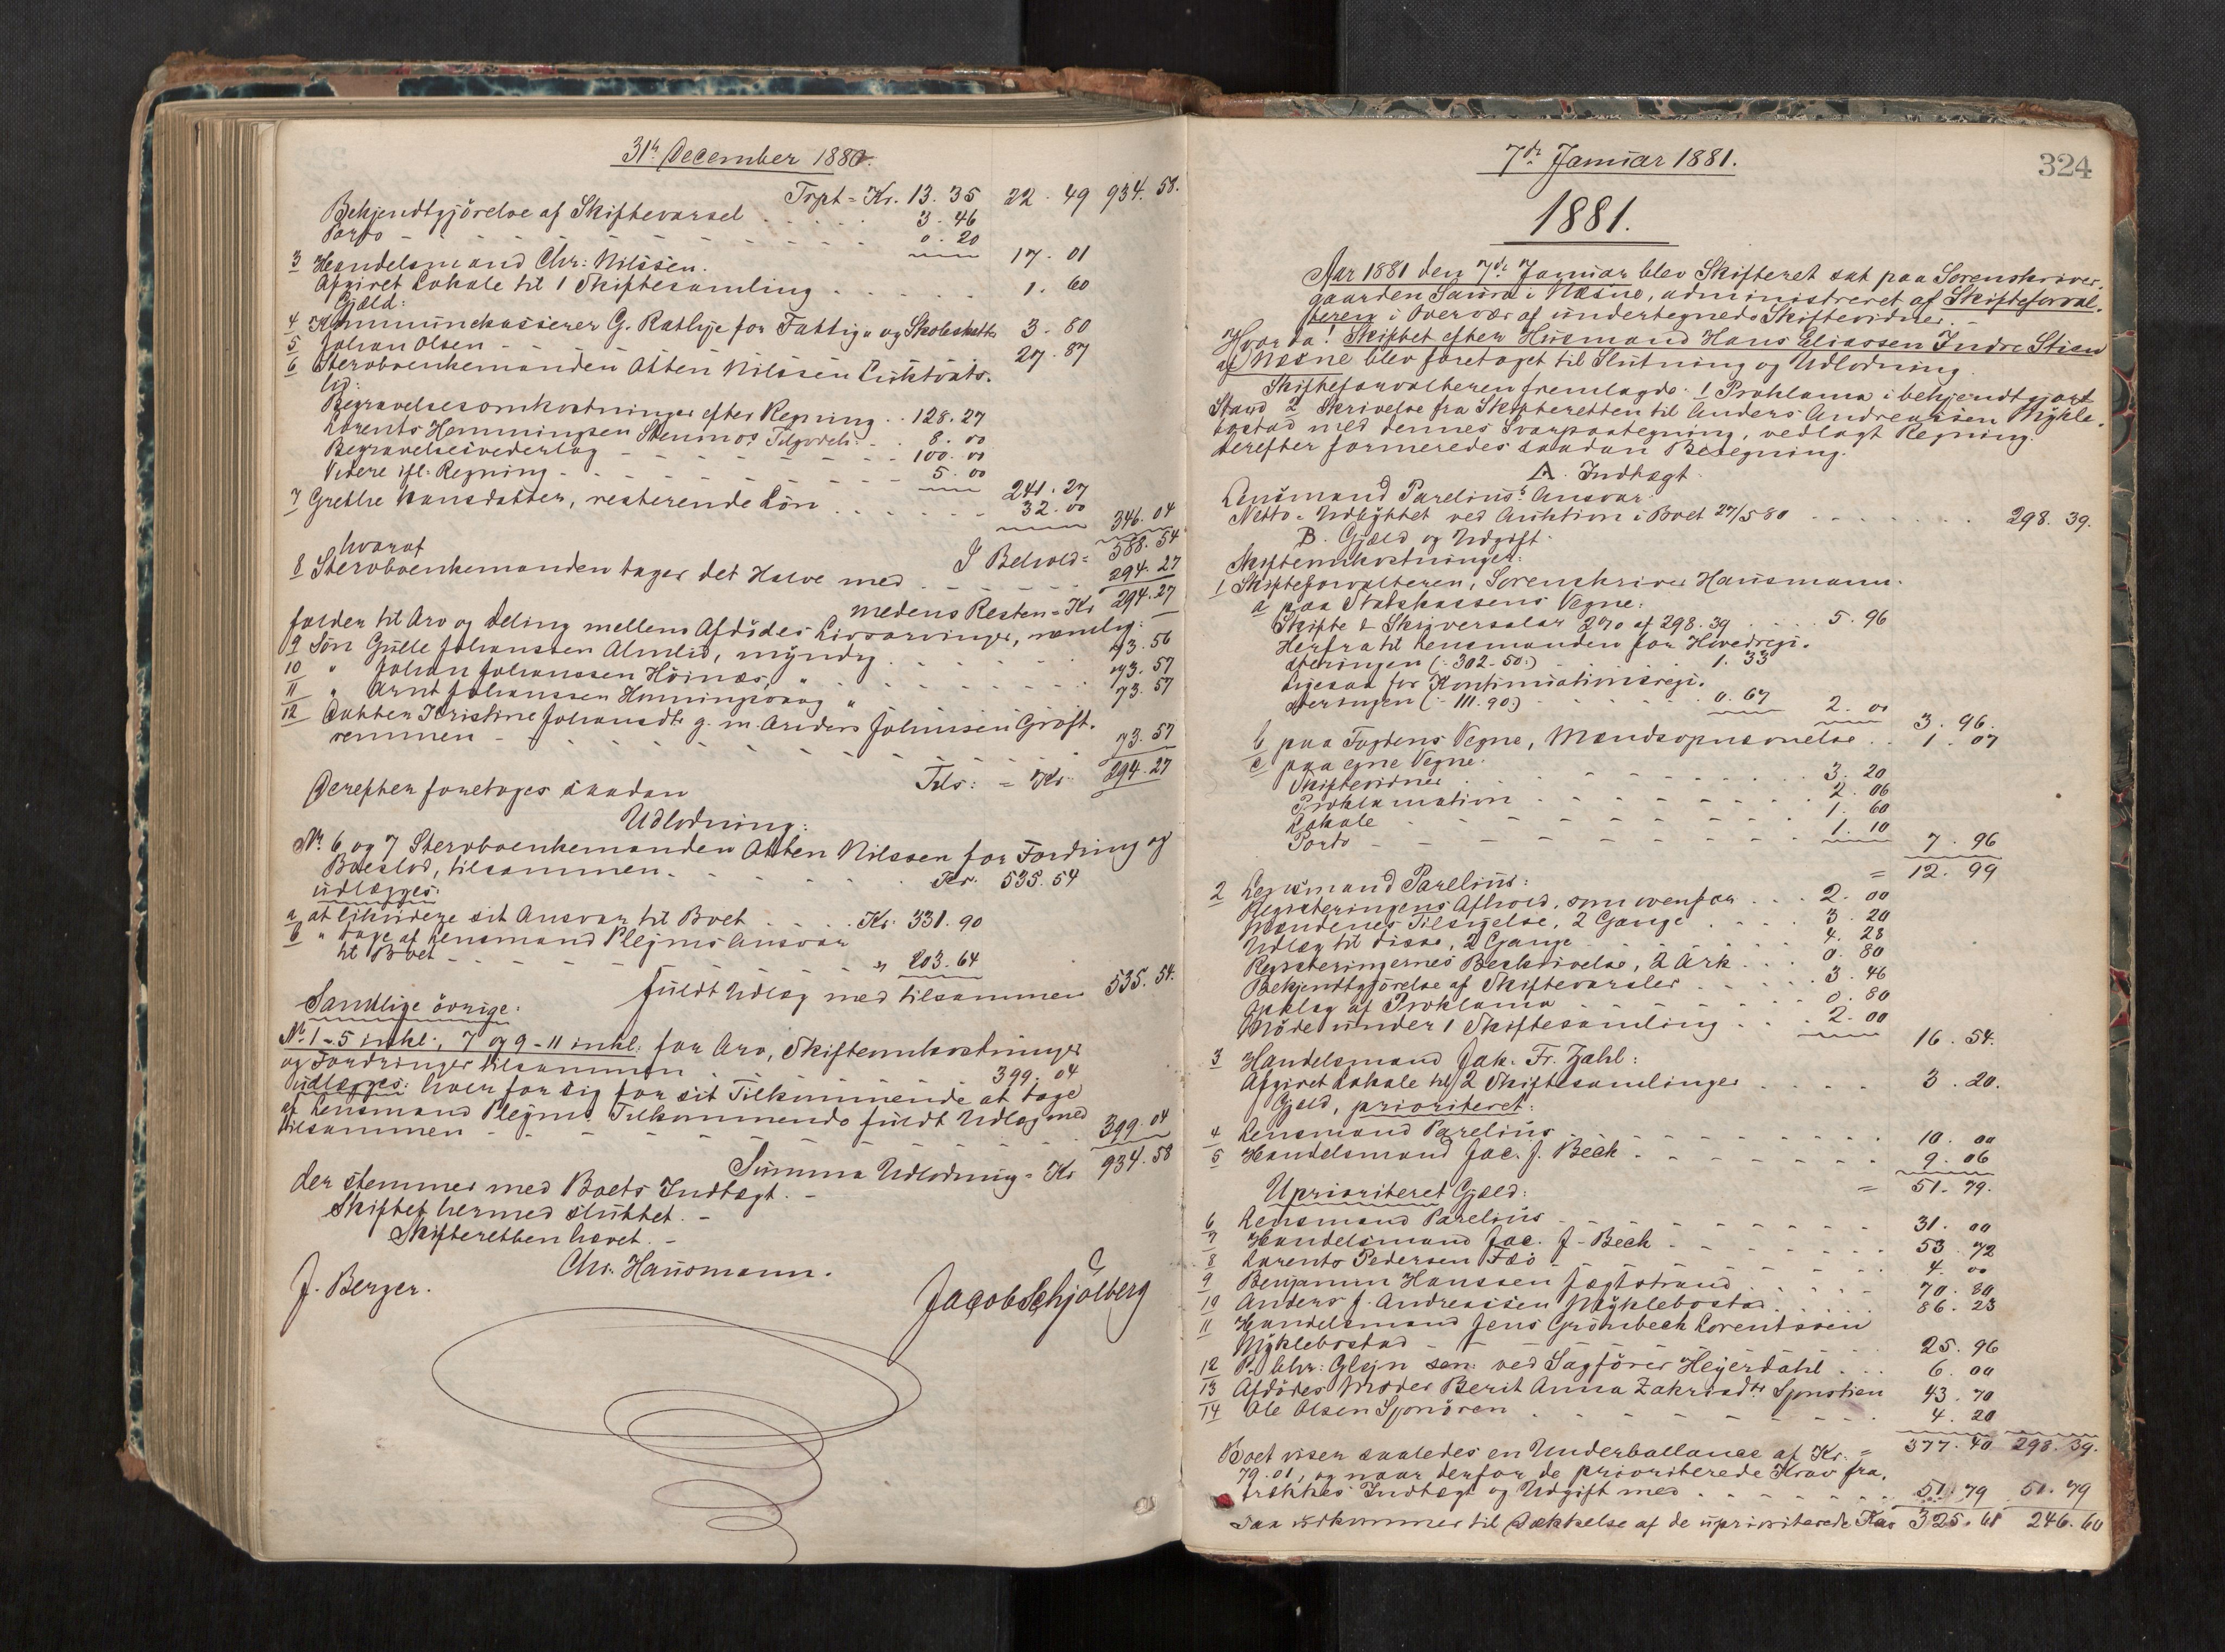 31te December 1880.
Trpt = Kr. 13. 35 22. 49 934. 58.
Bekjendtgjörelse af Skiftevarsel . . . . 3. 46
Porto - - - - - - - - - - 0. 20
17. 01
3 Handelsmand Chr: Nilssen.
Afgivet Lokale til 1 Skiftesamling . . . . . . 1. 60
Gjæld:
4 Kommunekasserer G. Rathje for Fattig- og Skoleskatter 3. 80
5 Johan Olsen - - - - 27. 87
6 Stervboenkemanden Atten Nilssen
lid:
Begravelsesomkostninger efter Regning . . 128. 27
Lorents Hemmingsen Tilgodeh: - . 8. 00
Begravelsesvederlag - - - - - - 100. 00
Videre ifl. Regning - - - - - - - 5. 00
241. 27
7 Grethe Hansdatter, resterende Lön . . . . . . 32. 00
346. 04
I Behold = 588. 54
hvoraf
8 Stervboenkemanden tager det Halve med - - - 294. 27
medens Resten = Kr 294. 27
falder til Arv og Deling mellem Afdödes Livsarvinger, nemlig:
9 Sön Gulle Johanssen Almlid, myndig . . . . . . 73. 56
10 " Johan Johanssen Höinæs, " . . . . . . . 73. 57
11 " Arnt Johanssen Hemmingsvaag " - - - - - 73. 57
12 Datter Kristine Johansdtr g. m. Anders Johnsen Gröft-
remmen - - - - - - - - - 73. 57
Tils: = Kr. 294. 27
Derefter foretoges saadan
Udlodning:
No. 6 og 7 Stervboenkemanden Atten Nilssen for Fordring og
Boeslod, tilsammen - - - - - Kr. 535. 54
udlægges:
a at likvidere sit Ansvar til Boet . . . . Kr. 331. 90
b " tage af Lensmand Plejms Ansvar
til Boet - - - - - - - - - " 203. 64
fuldt Udlæg med tilsammen 535. 54.
Samtlige övrige:
No. 1-5 inkl., 7 og 9-11 inkl. for Arv, Skifteomkostninger
og Fordringer tilsammen . . . . . . 399. 04
udlægges: hver for sig for sit Tilkommende at tage
af Lensmand Plejms Tilkommende fuldt Udlæg med
tilsammen - - - - - - - - - 399. 04
Summa Udlodning = Kr 934. 58
der stemmer med Boets Indtægt. -
Skiftet hermed sluttet. -
Skifteretten hævet. -
Chr. Hausmann.
J. Berger. Jacob Schjölberg
7de Januar 1881. 324
1881.
Aar 1881 den 7de Januar blev Skifteret sat paa Sorenskriver-
gaarden Saura i Næsne, administreret af Skifteforval-
teren i Overvær af undertegnede Skiftevidner. -
Hvorda! Skiftet efter Husmand Hans Eliassen Indre Stien
af Næsne blev foretaget til Slutning og Udlodning.
Skifteforvalteren fremlagde. 1 Proklama i bekjendtgjort
Stand 2 Skrivelse fra Skifteretten til Anders Andreassen Mykle-
bostad med dennes Svarpaategning, vedlagt Regning.
Derefter formeredes saadan Beregning.
A. Indtægt.
Lensmand Parelius's Ansvar
Netto-Udbyttet ved Auktion i Boet 27/5 80 - - - - - - 298. 39.
B. Gjæld og Udgift.
Skifteomkostninger:
1 Skifteforvalteren, Sorenskriver Hausmann.
a paa Statskassens Vegne:
Skifte & Skriversalær 2% af 298. 39 . . . . 5. 96
Herfra til Lensmanden for Hovedregi-
steringen (: 302-50:) - - - - 1. 33
Ligesaa for Kontinuationsregi-
steringen (: 111. 90:) - - - - - 0. 67 2. 00
3. 96.
b paa Fogdens Vegne, Mændsopnævnelse . . 1. 07
c paa egne Vegne.
Skiftevidner - - - - - - - - 3. 20
Proklamation - - - - - - - - 2. 06
Lokale - - - - - - - - - 1. 60
Porto - - - - - - - - - 1. 10
7. 96
= 12. 99
2 Lensmand Parelius:
Registeringens Afhold, som ovenfor . . . 2. 00
Mændenes Tilsigelse, 2 Gange . . . . 3. 20
Udlæg til disse, 2 Gange - - - - - 4. 28
Registeringernes Beskrivelse, 2 Ark . . . 0. 80
Bekjendtgjörelse af Skiftevarsler . . . . . 3. 46
Opslag af Proklama - - - - - - - 0. 80
Möde under 1 Skiftesamling . . . 2. 00
16. 54.
3 Handelsmand Jak. Fr. Zahl:
Afgivet Lokale til 2 Skiftesamlinger . . . . 3. 20.
Gjæld, prioriteret:
4 Lensmand Parelius - - - - - - - - 10. 00
5 Handelsmand Jac. J. Bech - - - - - - - 9. 06
= 51. 79.
Uprioriteret Gjæld:
6 Lensmand Parelius - - - - - - - - 31. 00
7 Handelsmand Jac. J. Bech - - - - - - - 53. 72
8 Lorents Pedersen - - - - - - - 4. 00
9 Benjamin Hanssen Jægtstrand . . . . . 70. 80
10 Anders J. Andreassen Myklebostad . . . . . 86. 23
11 Handelsmand Jens Grönbech Lorentsen
Myklebostad - - - - - - - 25. 96
12 P. Chr: Glejn sen: ved Sagförer Heyerdahl . . . 6. 00
13 Afdödes Moder Berit Anna Zakriasdtr 43. 70
14 Ole Olsen Sjonören - - - - - - - 4. 20
Boet viser saaledes en Underballance af Kr. = 377. 40 298. 39.
79. 01, og naar derfor de prioriterede Krav fra-
trækkes Indtægt og Udgift med . . . . . . 51. 79 51. 79
saa udkommer til Dækkelse af de uprioriterede Krav 325. 61 246. 60